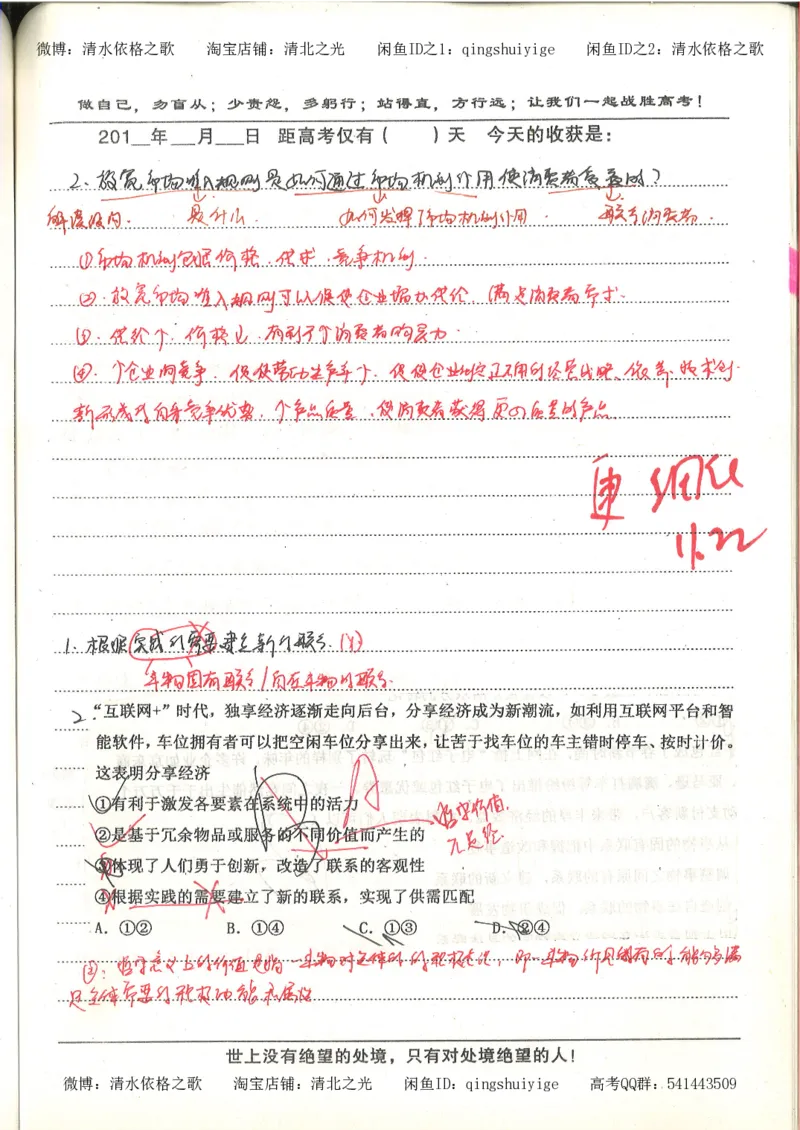 微博：清水依格之歌 淘宝店铺：清北之光 闲鱼ID之1：qingshuiyige 闲鱼ID之2：清水依格之歌
做自己，勿盲从；少责怨，多躬行；站得直，方行远；让我们一起战胜高考！
201__年___月___日 距高考仅有（ ）天 今天的收获是：
2、放宽市场准入规则是如何通过市场机制作用使消费者受益的？
解读设问． 是什么． 如何发挥市场机制作用． 联系消费者．
①市场机制包括价格、供求、竞争机制．
②．放宽市场准入规则可以促使企业增加供给，满足消费者需求．
③．供给↑，价格↓，有利于↑消费者购买力
④．↑企业间竞争，促使劳动生产率↑，促使企业制定正确的经营战略、依靠技术创
新形成自身竞争优势，↑产品质量，使消费者获得更高质量的产品
更细化
11.22
1、根据实践的需要建立新的联系．(×)
事物固有联系/固有事物的联系．
2、“互联网+”时代，独享经济逐渐走向后台，分享经济成为新潮流，如利用互联网平台和智
能软件，车位拥有者可以把空闲车位分享出来，让苦于找车位的车主错时停车、按时计价。
这表明分享经济
①有利于激发各要素在系统中的活力
②是基于冗余物品或服务的不同价值而产生的
哲学价值．
③体现了人们勇于创新，改造了联系的客观性
④根据实践的需要建立了新的联系，实现了供需匹配
A．①② B．①④ C．①③ D．②④
②：哲学意义上的价值是指一事物对主体的积极意义，即一事物所具有的能够满
足主体需要的积极功能和属性
世上没有绝望的处境，只有对处境绝望的人！
微博：清水依格之歌 淘宝店铺：清北之光 闲鱼ID：qingshuiyige 高考QQ群：541443509